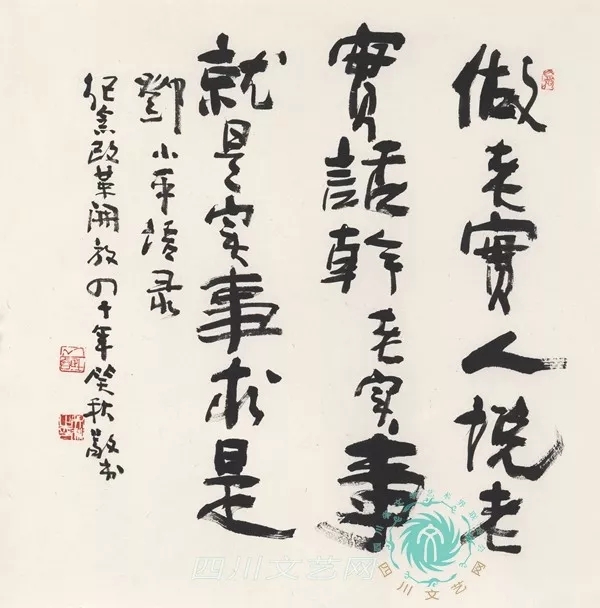 做老實人說老
實話幹老实事
就是实事求是
鄧小平语录
纪念改革開放四十年笑秋敬书
四川文艺网
四川文艺网